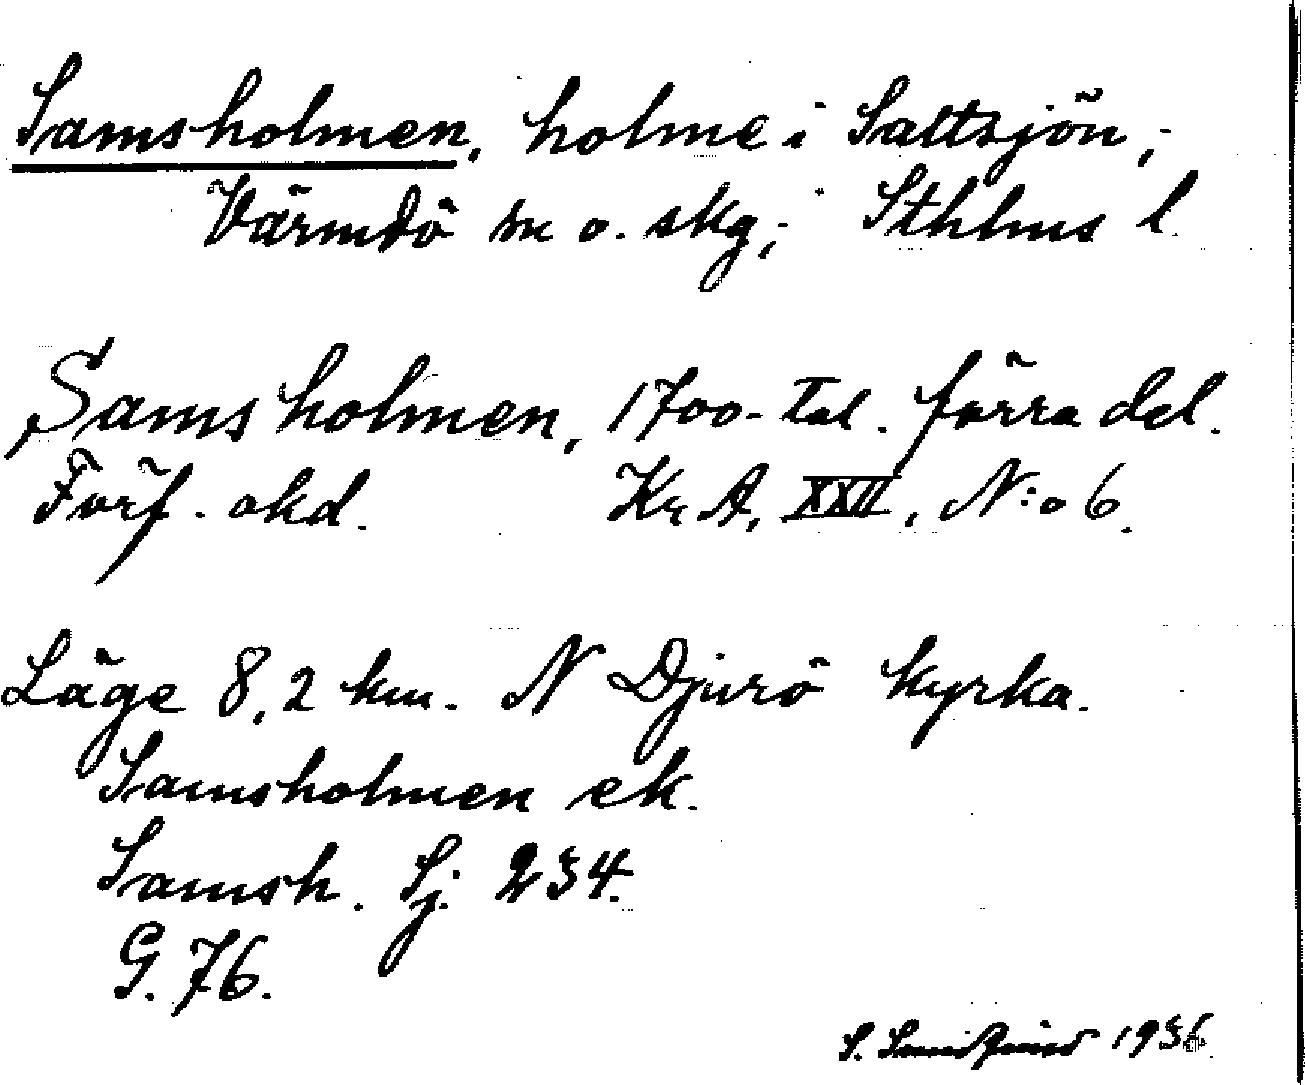 Samsholmen, holme i Saltsjön,
Värmdö sn o. skg, Sthlms l.
Samsholmen, 1700-tal. förra del.
Förf. okd. Kr A, XXII, N:o 6.
Läge 8,2 km. N Djurö kyrka.
Samsholmen ek.
Samsh. Sj. 234.
G. 76.
S. 1936